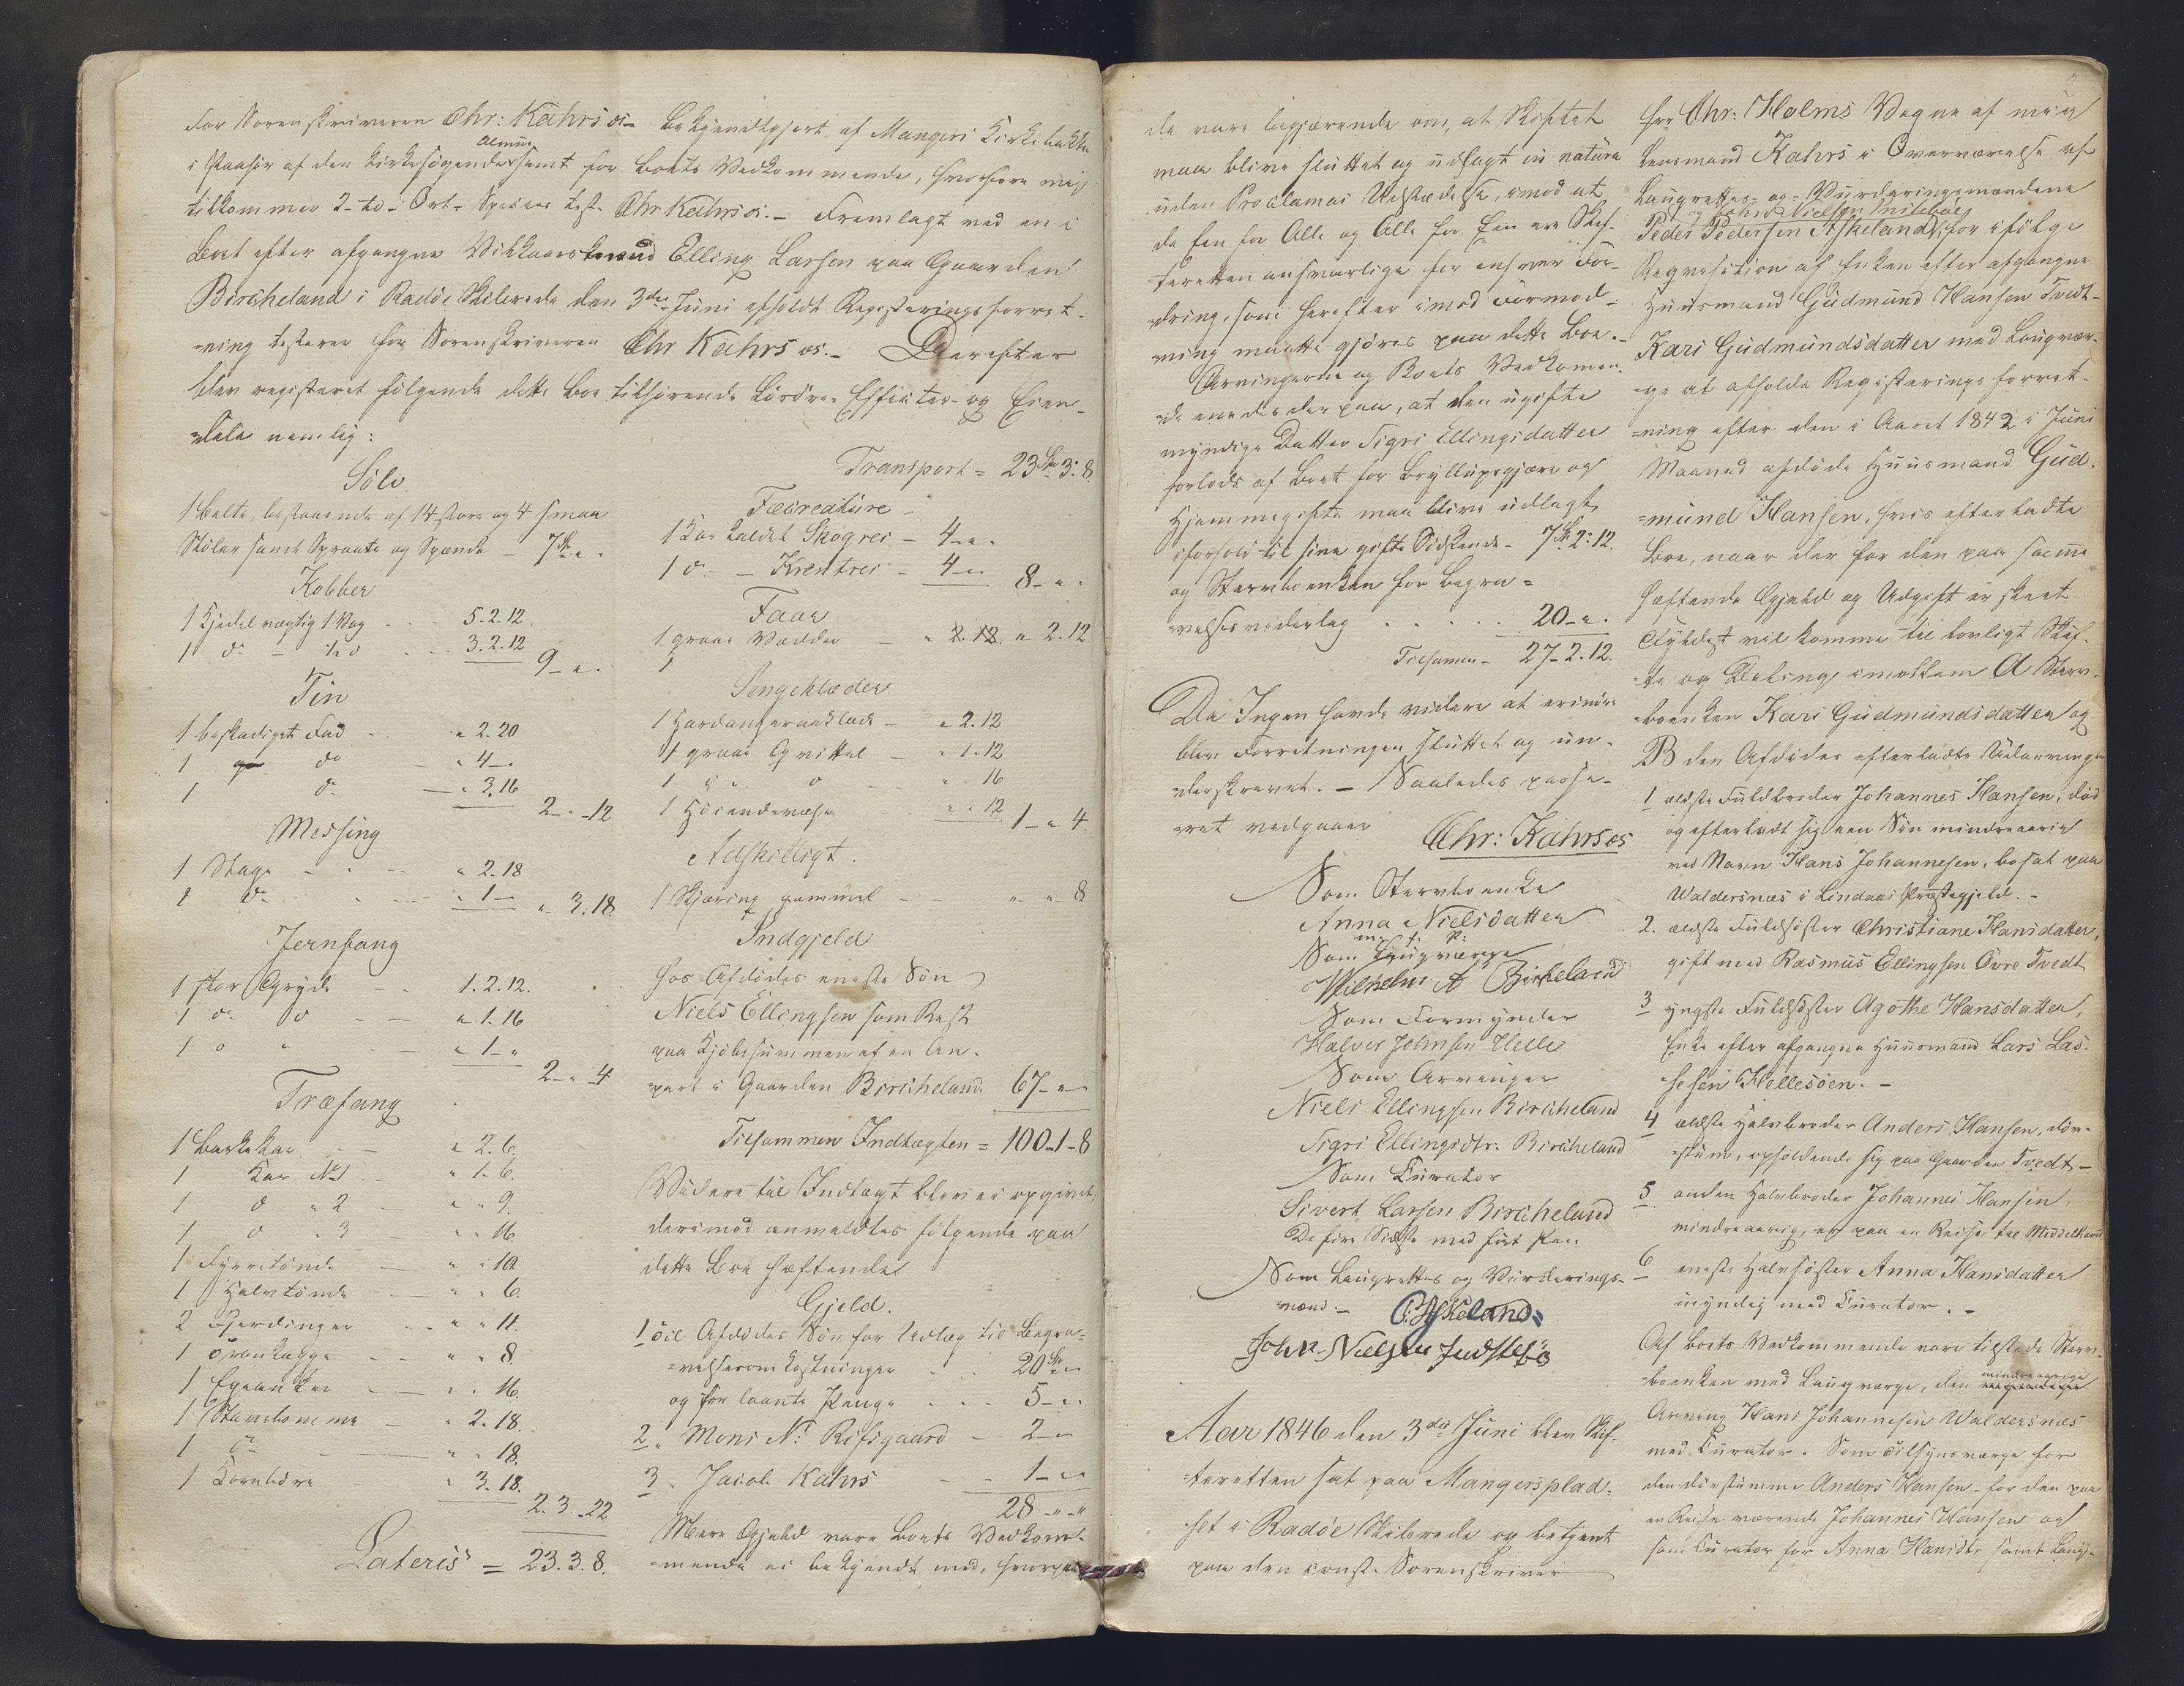 For Sorenskriveren Chr: Kahrs os.- Bekjendtgjort af Mangers Kirkebakke
i Paahør af den kirkesøgende Almue samt for Boets Vedkommende, hvorfore mig
tilkommer 2- to - Ort Species test. Chr Kahrs os.- Fremlagt ved en i
Boet efter afgangne Vilkaarsmand Elling Larsen paa Gaarden
Bircheland i Radöe Skibrede den 3die Juni afholdt Registeringsforret-
-ning testerer for Sorenskriveren Chr Kahrs os.- Derefter
blev registeret følgende dette Boe tilhørende Lösöre- Effecter- og Eien-
-dele nemlig:
Sölv
1 Belte, bestaaende af 14 store og 4 smaa
Stöler samt Spraate og Spænde - 7 Sp "."
Kobber
1 Kjedel vægtig 1 Vog - 5.2.12
1 do - ½ do 3.2.12
9 - " - "
Tin
1 beskadiget Fad " 2.20
1 do " 4 - "
1 do - " 3.16
2 - " - 12
Messing
1 Stage " 2.18
1 do " 1 -
" 3.18
Jernfang
1 stor Gryde 1.2.12.
1 do do " 1.16
1 do " " 1 - "
2 - " - 4
Træfang
1 Barkekar " 2.6.
1 Kar No 1 " 1.6.
1 do " 2 " " 9.
1 do " 3 " " 16.
1 Fyrretönde " " 10
1 Halvtönde " " 6.
2 Fjerdinger " " 11.
1 " " 8.
1 " " 16.
1 " 2.18.
1 do " " 18.
1 " 3.18.
2.3.22
Lateris = 23.3.8.
Transport = 23 Sp 3.8.
Fæcreature
1 Koe kaldet Skogrei - 4 - " "
1 do - Krentrei - 4 - " 8 - " "
Faar
1 graae Vædder - " 2.12. " 2.12
1
Sengeklæder
1 Hardangeraaklæde - " 2.12
1 graae Grittel - " 1.12
1 " do " " 16
1 " " 12 1 - " 4.
Adskilligt.
1 Skjæring gammel " " 8
Indgjeld
hos Afdödes eneste Sön
Niels Ellingsen som Rest
paa Kjöbesummen af en An-
-part i Gaarden Birchelund 67 - " -
Tilsammen Indtægten = 100-1-8
Videre til Indtægt blev ei opgivet,
derimod anmeldtes følgende paa
dette Boe hæftende
Gjeld.
1 til Afdödes Sön for Udlæg til Begra-
-velsesomkostninger 20 Sp " "
og for laante Penge 5 - " "
2. Mons N: Risisgaard - 2 - "
3. Jacob Kahrs - 1 - " "
28 - " - "
Mere Gjeld vare Boets Vedkom-
-mende ei bekjendt med, hvorpaa
de vare begjærende om, at Skiftet
maa blive sluttet og udlagt in natura
uden Proclamas Udstædelse, imod at
de Een for Alle og Alle for Een ere Skif-
-teretten ansvarlige for enhver For-
-dring, som herefter imod Formod-
ning maatte gjöres paa dette Boe.-
Arvingerne og Boets Vedkomen-
de enedes derpaa, at den ugifte
myndige Datter Sigri Ellingsdatter
forlods af Boet for Bryllupsgjære og
Hjemmegifte maa blive udlagt
iforhold til sine gifte Södskende - 7 Sp 2.12.
og Stervboenken for Begra-
-velsesvederlag 20 - " -
Tilsamen - 27-2.12.
Da Ingen havde videre at erindre
blev Forretningen sluttet og un-
derskrevet. - Saaledes passe-
-ret vedgaaer
Chr: Kahrs os
Som Stervboenke
Anna Nielsdatter
m. f. P:
Som Laugværge
Wilhelm A Birkeland
Som Formynder
Halver Johnsen Helle
Som Arvinger
Niels Ellingsen Bircheland
Sigri Ellingsdtr. Bircheland
Som Curator
Sivert Larsen Bircheland
De fire Sidste med ført Pen.
Som Laugrettes og Vurderings-
mænd.- P. Askeland.
John Nielsen
Aar 1846 den 3die Juni blev Skif-
-teretten sat paa Mangersplad-
-set i Radöe Skibrede og betjent
paa den const. Sorenskriver
Hr Chr: Holms Vegne af mig
Lensmand Kahrs i Overværelse af
Laugrettes- og- Vurderingsmændene
Peder Pedersen Askeland og John Nielsen, for ifölge
Reqvisition af Enken efter afgangne
Huusmand Gudmund Hansen Tvedt-
Kari Gudmundsdatter med Laugvær-
-ge at afholde Registeringsforret-
-ning efter den i Aaret 1842 i Juni
Maaned afdöde Huusmand Gud-
-mund Hansen, hvis efterladte
Boe, naar der for den paa samme
hæftende Gjeld og Udgift er skeet
Fyldest vil komme til lovligt Skif-
-te og Deling imellem A Sterv-
-boenken Kari Gudmundsdatter og
B den Afdödes efterladte Udarvinger
1 ældste Fuldbroder Johannes Hansen, död
og efterladt sig een Sön mindreaarig
ved Navn Hans Johannesen, bosat paa
Waldersnæs i Lindaas Præstegjeld.-
2. ældste Fuldsöster Christiane Hansdatter,
gift med Rasmus Ellingsen Övre Tvedt
3 yngste Fuldsöster Agothe Hansdatter,
Enke efter afgangne Huusmand Lars Las-
-sesen Hellesöen.-
4 ældste Halvbroder Anders Hansen, döv-
-stum, opholdende sig paa Gaarden Tvedt -
5 anden Halvbroder Johannes Hansen,
mindreaarig, er paa en Reise til Middelhavet
6 eneste Halvsöster Anna Hansdatter
myndig med Curator.-
Af Boets Vedkommende vare tilstede Sterv-
-boenken med Laugværge, den mindreaarige
Arving Hans Johannesen Waldersnæs
med Curator. Som Tilsynsværge for
den dövstumme Anders Hansen - for den paa
en Reise værende Johannes Hansen og
som Curator for Anna Hansdtr samt Laug-